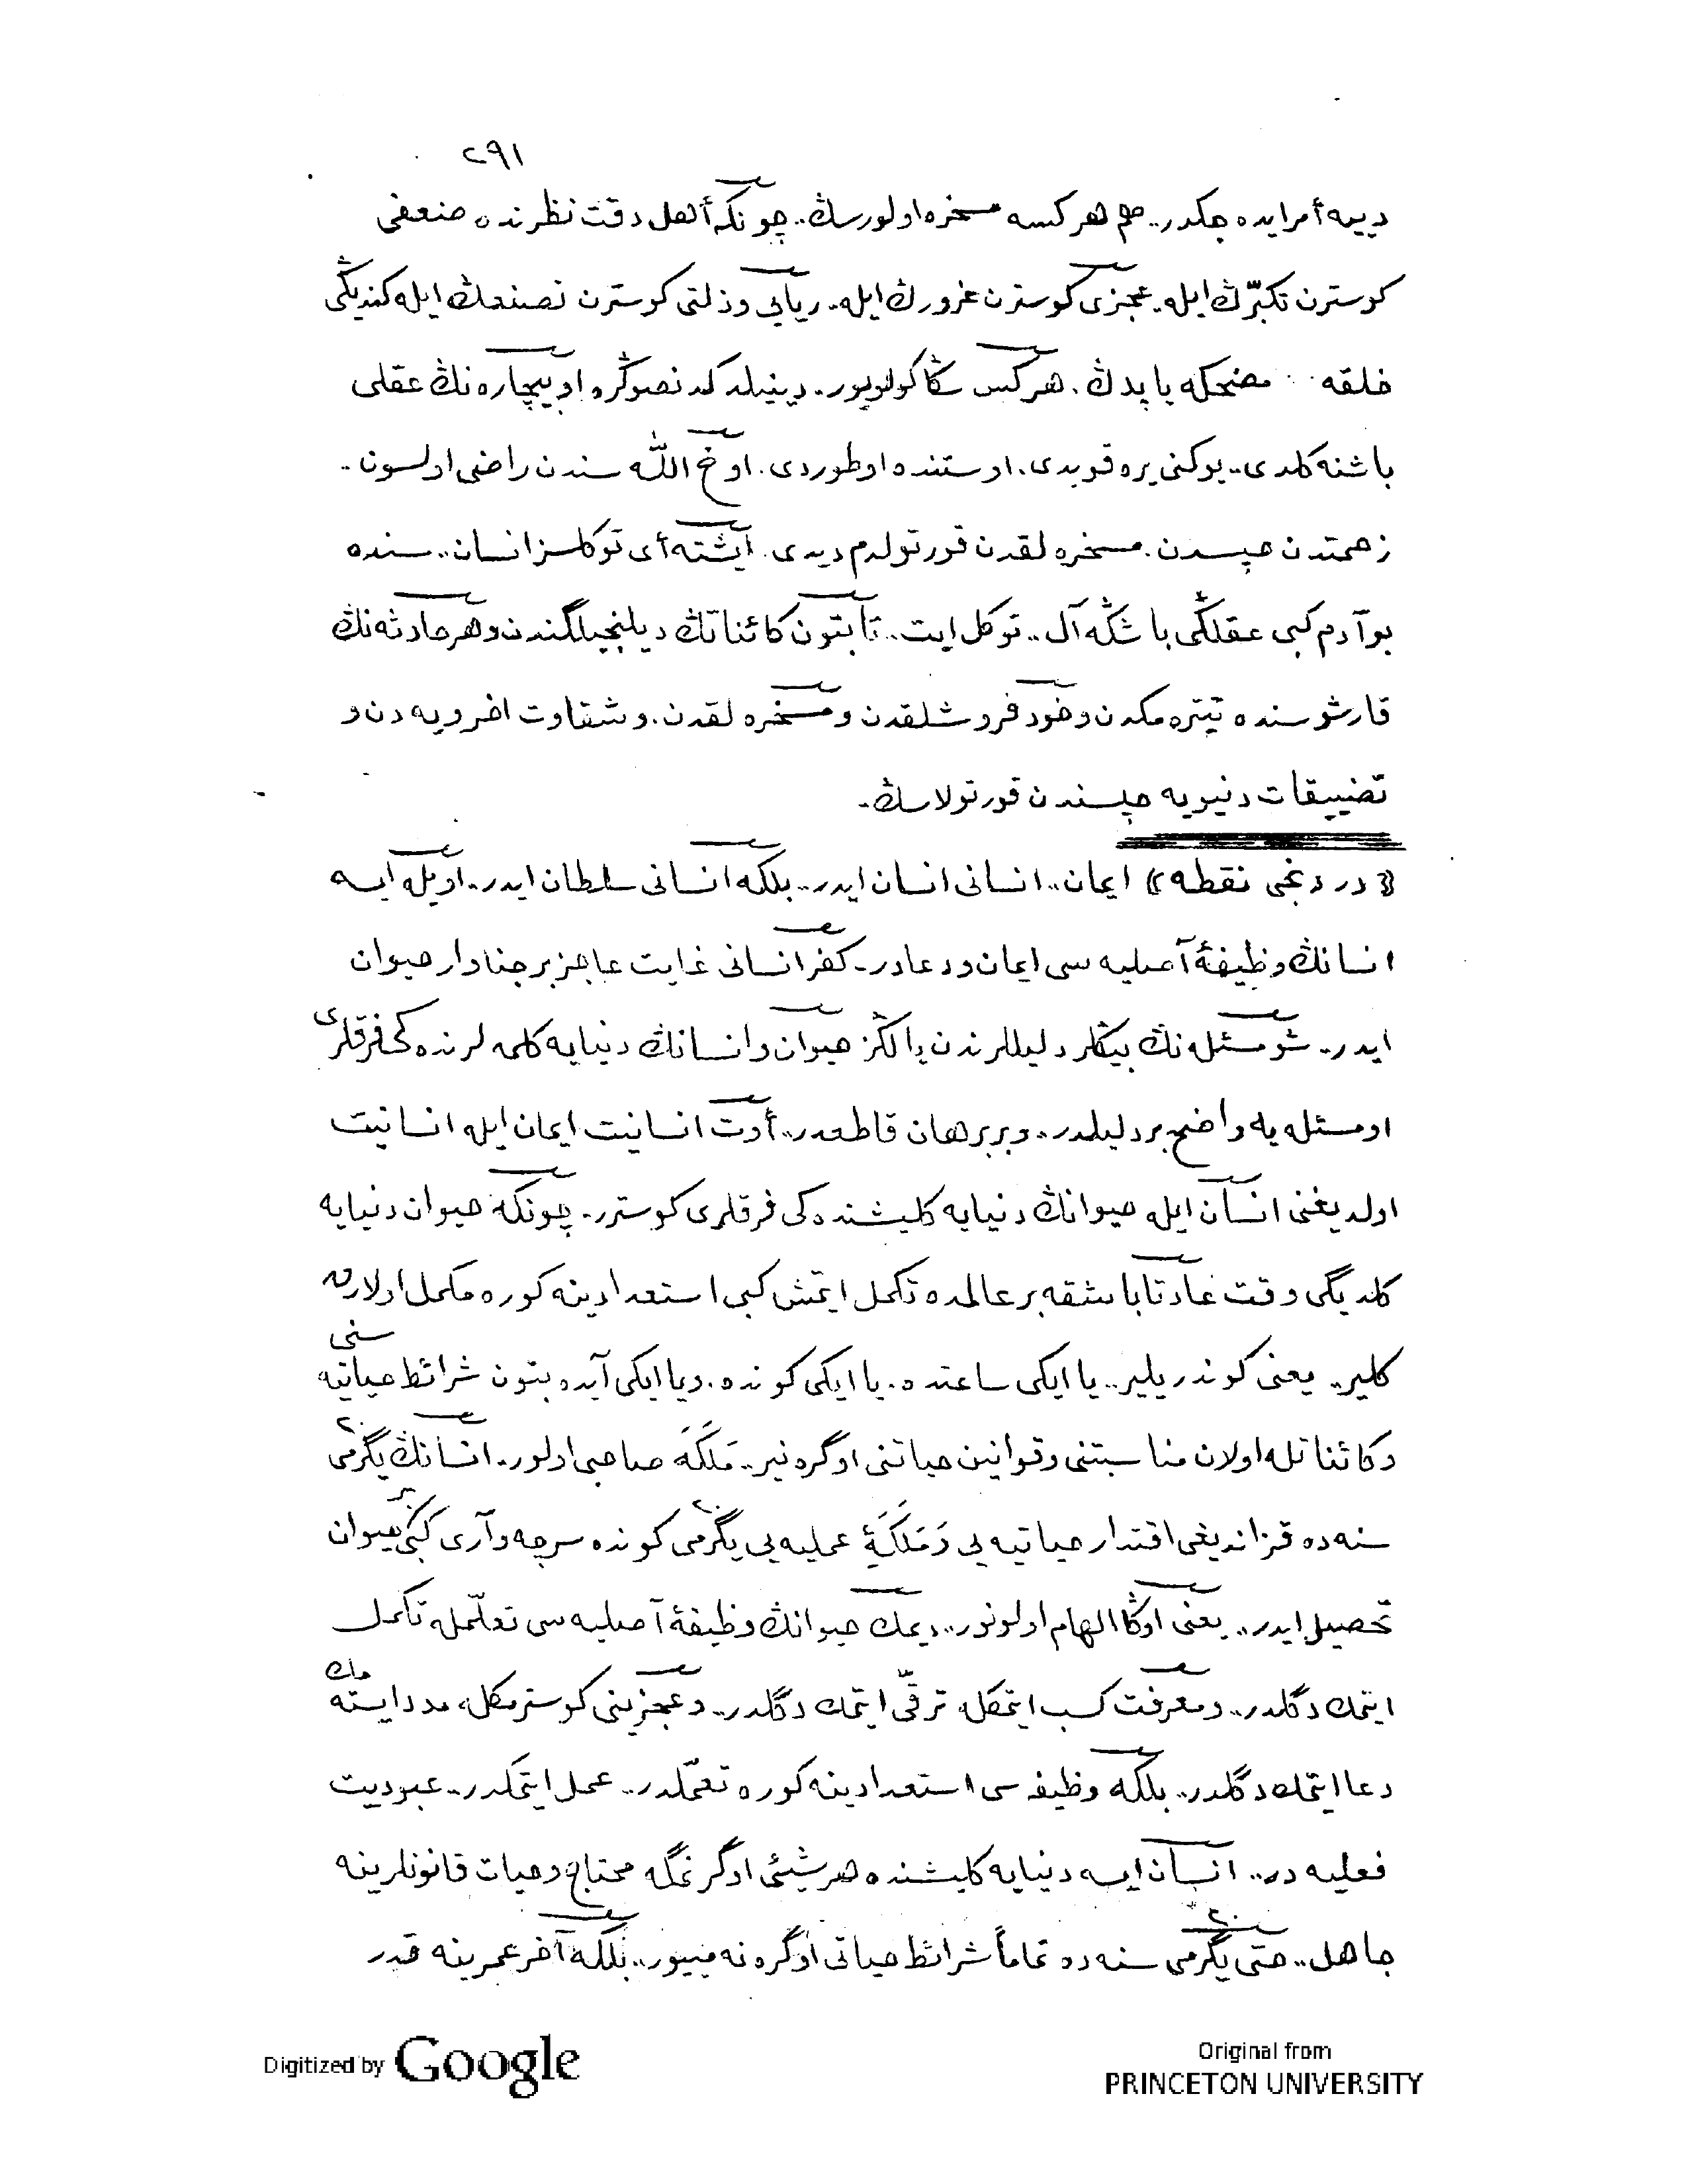 ٢٩١
دییه أمر ایده جكدر.. هم هركسه مسخره اولورسڭ.. چونكه أهل دقت نظرنده ضعفی
كوسترن تكبّرڭ ایله. عجزی كوسترن غرورڭ ایله. ریایی وذلتی كوسترن تصنعڭ ایله كندیڭی
خلقه مضحكه یاپدڭ. هركس سڭا كولویور. دینیلدكدنصوڭره اوبیچاره نڭ عقلی
باشنه كلدی.. یوكنی یره قویدی. اوستنده اوطوردی. اوخ الله سندن راضی اولسون..
زحمتدن حپسدن. مسخره لقدن قورتولدم دیدی. ایشته أی توكلسز انسان.. سنده
بوآدم كبی عقلڭی باشڭه آل.. توكل ایت.. تا بتون كائناتڭ دیلنجیلگندن وهرحادثه نڭ
قارشوسنده تیتره مكدن وخودفروشلقدن ومسخره لقدن. وشقاوت اخرویه دن و
تضییقات دنیویه حپسندن قورتولاسڭ.
﴿دردنجی نقطه﴾ ایمان.. انسانی انسان ایدر.. بلكه انسانی سلطان ایدر.. اویله ایسه
انسانڭ وظیفۀ آصلیه سی ایمان ودعادر. كفر انسانی غایت عاجز برجناوار حیوان
ایدر.. شومسئله نڭ بیڭلر دلیللرندن یالڭز حیوان وانسانڭ دنیایه كلمه لرنده كی فرقلری
اومسئله یه واضح بردلیلدر.. وبربرهان قاطعدر.. أوت انسانیت ایمان ایله انسانیت
اولدیغنی انسان ایله حیوانڭ دنیایه كلیشنده كی فرقلری كوسترر.. چونكه حیوان دنیایه
كلدیگی وقت عادتا باشقه برعالمده تكمل ایتمش كبی استعدادینه كوره مكمل اولارق
كلیر.. یعنی كوندریلیر.. یا ایكی ساعتده. یا ایكی كونده. ویا ایكی آیده بتون شرائط حیاتیه سنی
وكائناتله اولان مناسبتنی وقوانین حیاتنی اوگره نیر.. مَلَكَه صاحبی اولور.. انسانڭ یگرمی ٢٠
سنه ده قزاندیغی اقتدار حیاتیه یی وَمَلَكَۀِ عملیه یی یگرمی ٢٠ كونده سرچه وآری كبی بر حیوان
تحصیل ایدر.. یعنی اوڭا الهام اولونور.. دیمك حیوانڭ وظیفۀ آصلیه سی تعلّمله تكمل
ایتمك دگلدر.. ومعرفت كسب ایتمكله ترقّی ایتمك دگلدر.. وعجزینی كوسترمكله مدد ایسته مك
دعا ایتمك دگلدر.. بلكه وظیفه سی استعدادینه كوره تعمّلدر.. عمل ایتمكدر.. عبودیت
فعلیه در.. انسان ایسه دنیایه كلیشنده هرشیئی اوگرنمگه محتاج وحیات قانونلرینه
جاهل.. حتی یگرمی ٢٠ سنه ده تماماً شرائط حیاتی اوگره نه مییور.. بلكه آخر عمرینه قدر
Digitized by Google
Original from
PRINCETON UNIVERSITY